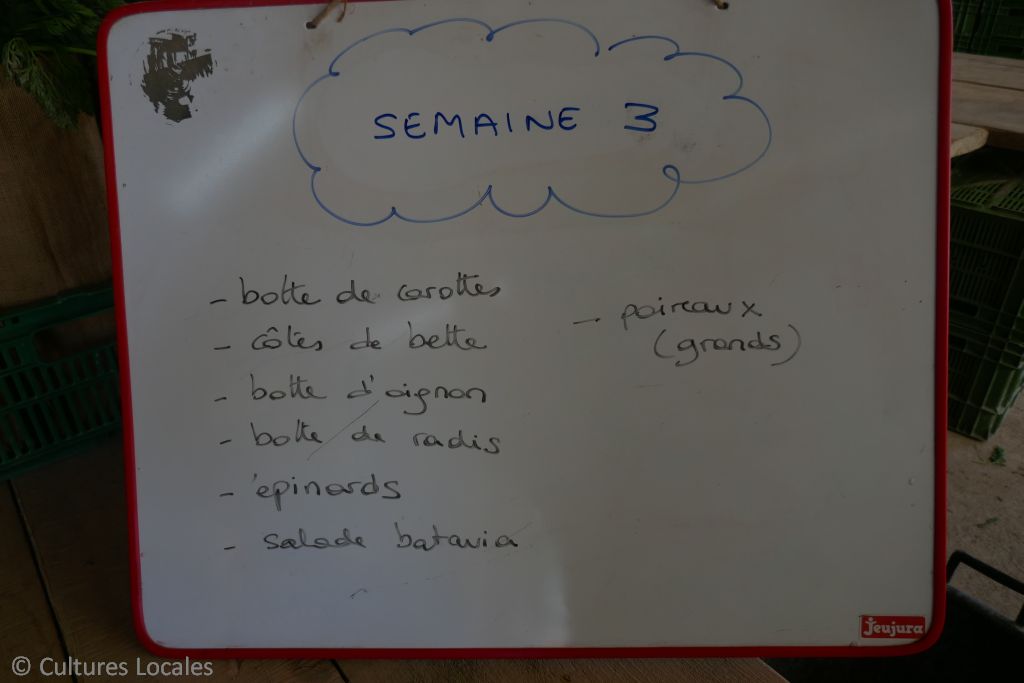 SEMAINE 3
- botte de carottes
- côtes de bette
- botte d'oignon
- botte de radis
- épinards
- salade batavia
- poireaux
(grands)
Jeujura
© Cultures Locales